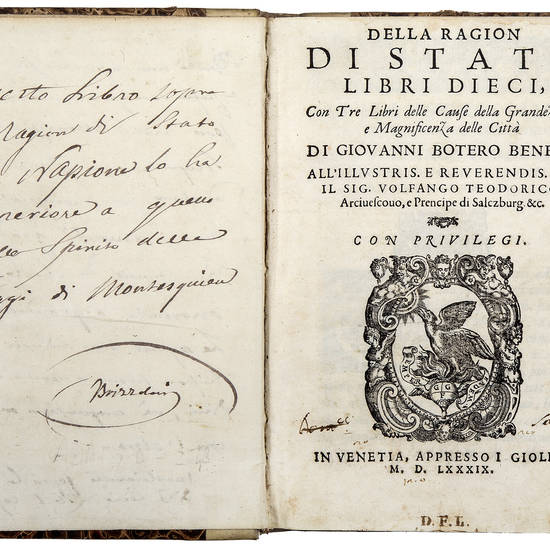 Libro sopra
Ragion di Stato
Napione lo ha
a
Spirito delle
di Montesquieu
DELLA RAGION
DI STAT
LIBRI DIECI,
Con Tre Libri delle Cause della Grande
e Magnificenza delle Città
DI GIOVANNI BOTERO BENE
ALL'ILLVSTRIS. E REVERENDIS.
IL SIG. VOLFANGO TEODORICO
Arciuescouo, e Prencipe di Salczburg &c.
CON PRIVILEGI.
IN VENETIA, APPRESSO I GIOLI
M. D. LXXXIX.
D. F. L.